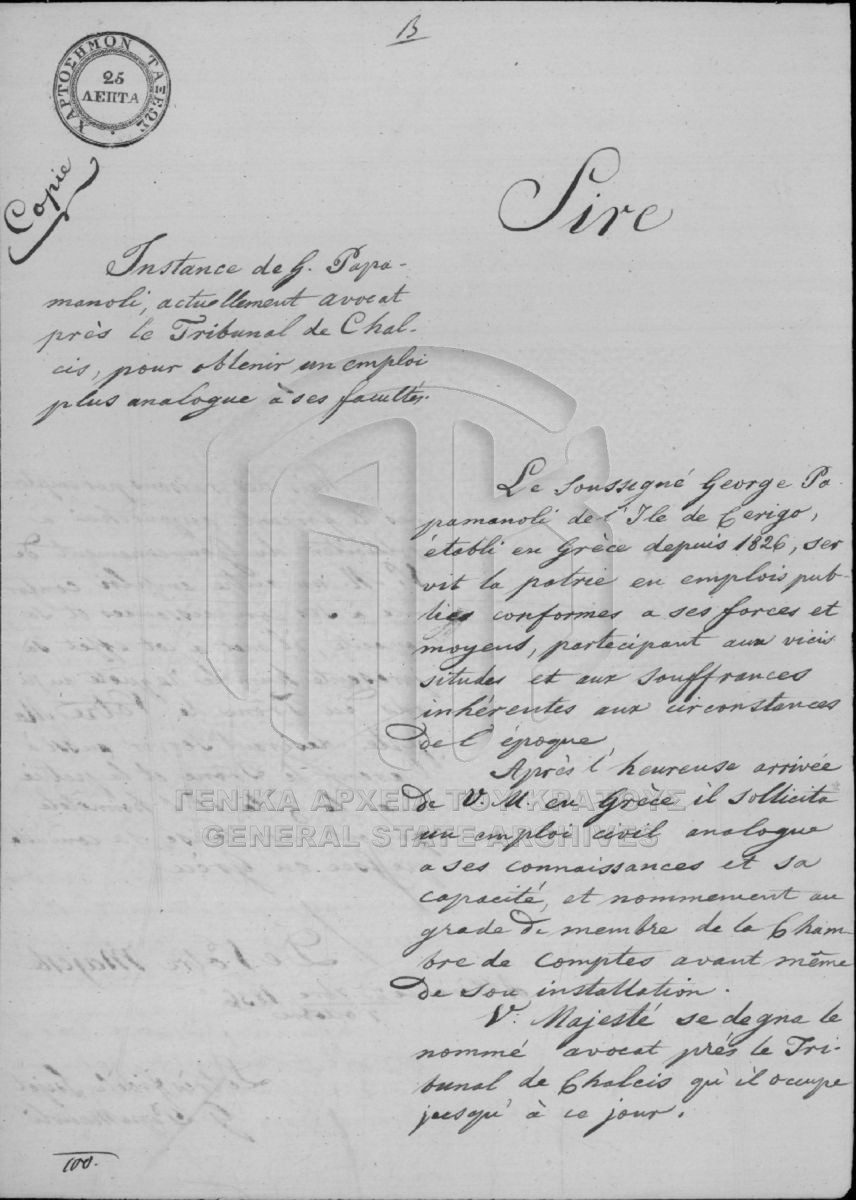 B
ΧΑΡΤΟΣΗΜΟΝ ΤΑΞΕΩΣ
25
ΛΕΠΤΑ
Copie
Sire
Instance de G. Papa-
manoli, actuellement avocat
près le Tribunal de Chal-
cis, pour obtenir un emploi
plus analogue à ses facultés.
Le soussegné George Pa-
pamanoli de l'Ile de Cerigo,
établi en Grèce depuis 1826, ser
vit la patrie en emplois pub-
lics conformes a ses forces et
moyens, partecipant aux vicis
situdes et aux souffrances
inhérentes aux circonstances
de l'époque
Après l'heureuse arrivée
de V. M. en Grèce il sollicita
un emploi civil analogue
a ses connaissances et sa
capacité, et nommement au
grade de membre de la Cham-
bre de comptes avant même
de son installation.
V. Majesté se degna le
nommé avocat près le Tri-
bunal de Chalcis qu'il occupe
jusqu'à ce jour.
100.
ΓΕΝΙΚΑ ΑΡΧΕΙΑ ΤΟΥ ΚΡΑΤΟΥΣ
GENERAL STATE ARCHIVES